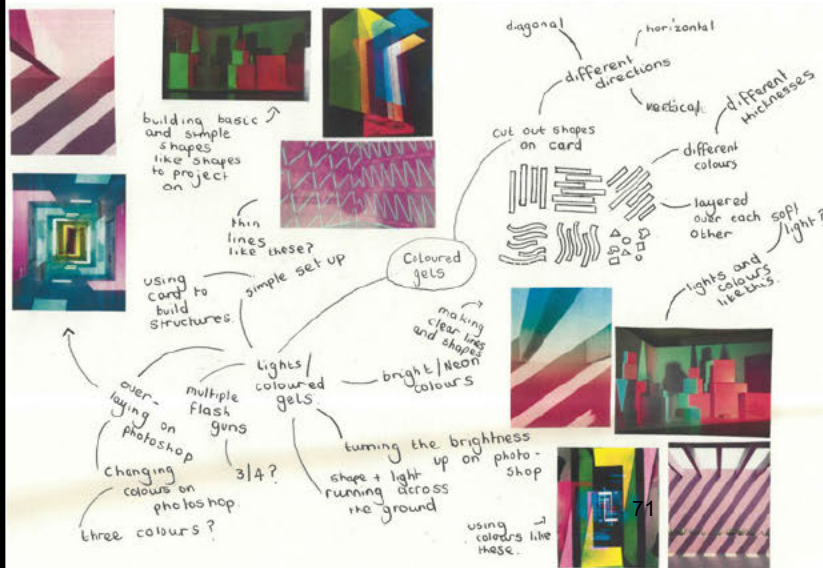 diagonal
horizontal
different
directions
vertical
different
thicknesses
cut out shapes
on card
different
colours
layered
over each
other
soft
light?
lights and
colours
like this.
building basic
and simple
shapes
like shapes
to project
on
thin
lines
like these?
Coloured
gels
simple set up
using
card to
build
structures.
making
clear lines
and shapes
Lights/
coloured
gels.
bright/Neon
colours
over-
laying on
photoshop
multiple
flash
guns
3/4?
Changing
colours on
photoshop.
three colours?
turning the brightness
up on photo-
shop
shape + light
running across
the ground
using
colours like
these.
71